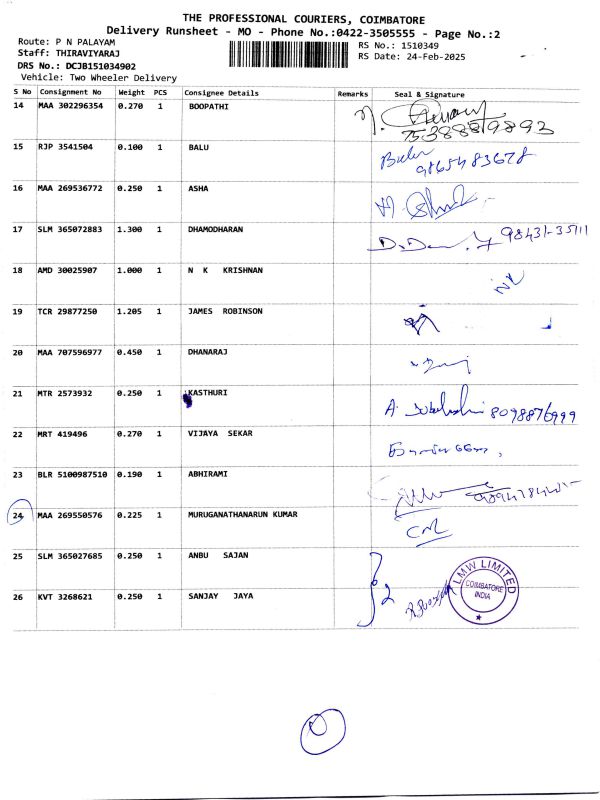 THE PROFESSIONAL COURIERS, COIMBATORE
Delivery Runsheet - MO - Phone No.:0422-3505555 - Page No.:2
Route: P N PALAYAM
RS No.: 1510349
Staff: THIRAVIYARAJ
RS Date: 24-Feb-2025
DRS No.: DCJB151034902
Vehicle: Two Wheeler Delivery
S No Consignment No Weight PCS Consignee Details Remarks Seal & Signature
14 MAA 302296354 0.270 1 BOOPATHI
15 RJP 3541504 0.100 1 BALU 9865483678
16 MAA 269536772 0.250 1 ASHA
17 SLM 365072883 1.300 1 DHAMODHARAN 98431-35111
18 AMD 30025907 1.000 1 N K KRISHNAN
19 TCR 29877250 1.205 1 JAMES ROBINSON
20 MAA 707596977 0.450 1 DHANARAJ
21 MTR 2573932 0.250 1 KASTHURI 8098876999
22 MRT 419496 0.270 1 VIJAYA SEKAR
23 BLR 5100987510 0.190 1 ABHIRAMI
24 MAA 269550576 0.225 1 MURUGANATHANARUN KUMAR
25 SLM 365027685 0.250 1 ANBU SAJAN
26 KVT 3268621 0.250 1 SANJAY JAYA
2
LMW LIMITED
COIMBATORE
INDIA